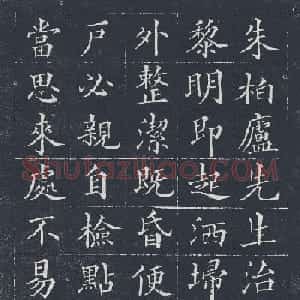 朱柏廬先生治
黎明即起洒埽
外整潔既昏便
戶必親自檢點
當思來處不易
Shufaziliao.com